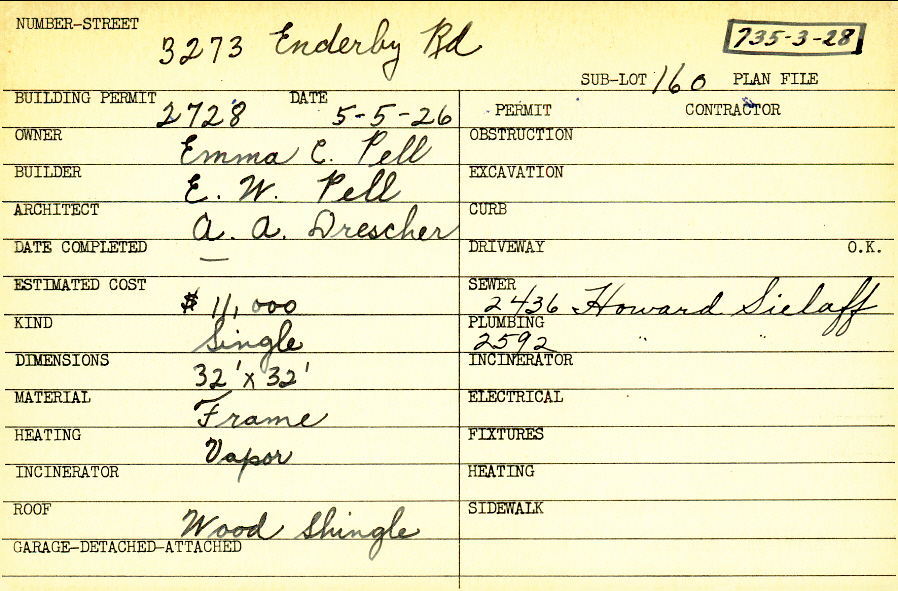 NUMBER-STREET
3273 Enderby Rd
735-3-28
SUB-LOT 160 PLAN FILE
BUILDING PERMIT 2728 DATE 5-5-26
PERMIT CONTRACTOR
OWNER Emma C. Pell
OBSTRUCTION
BUILDER E. W. Pell
EXCAVATION
ARCHITECT A. A. Drescher
CURB
DATE COMPLETED —
DRIVEWAY O.K.
ESTIMATED COST $ 11,000
SEWER 2436 Howard Sielaff
KIND Single
PLUMBING 2592 " "
DIMENSIONS 32' x 32'
INCINERATOR
MATERIAL Frame
ELECTRICAL
HEATING Vapor
FIXTURES
INCINERATOR
HEATING
ROOF Wood Shingle
SIDEWALK
GARAGE-DETACHED-ATTACHED